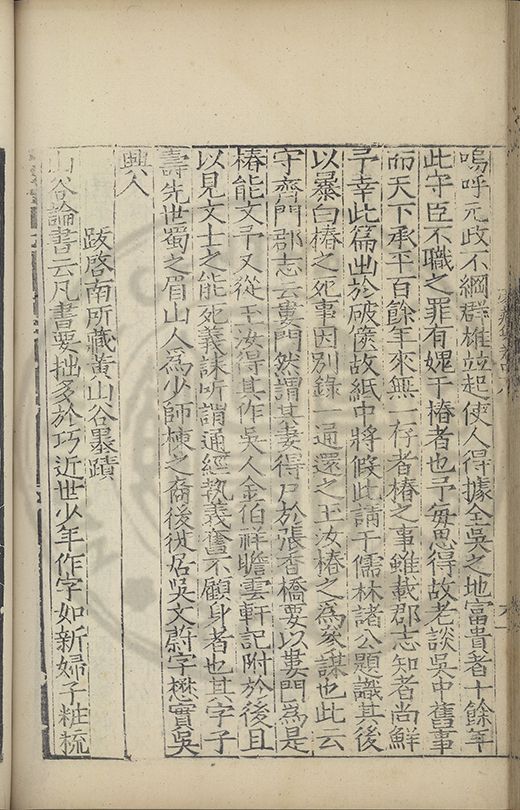 嗚呼元政不綱群雄並起使人得據全吳之地富貴者十餘年
此守臣不職之罪有媿于椿者也予每思得故老談吳中舊事
而天下承平百餘年來無一存者椿之事雖載郡志知者尚鮮
予幸此篇出於破篋故紙中將假此請于儒林諸公題識其後
以暴白椿之死事因別錄一通還之王汝椿之為参謀也此云
守齊門郡志云婁門然謂其妻得尸於張香橋要以婁門為是
椿能文予又從王汝得其作吳人金伯祥瞻雲軒記附於後且
以見文士之能死義誠所謂通經執義奮不顧身者也其字子
壽先世蜀之眉山人為少師棟之裔後徙居吳文蔚字懋實吳
興人
跋啓南所藏黃山谷墨蹟
山谷論書云凡書要拙多於巧近世少年作字如新婦子粧梳